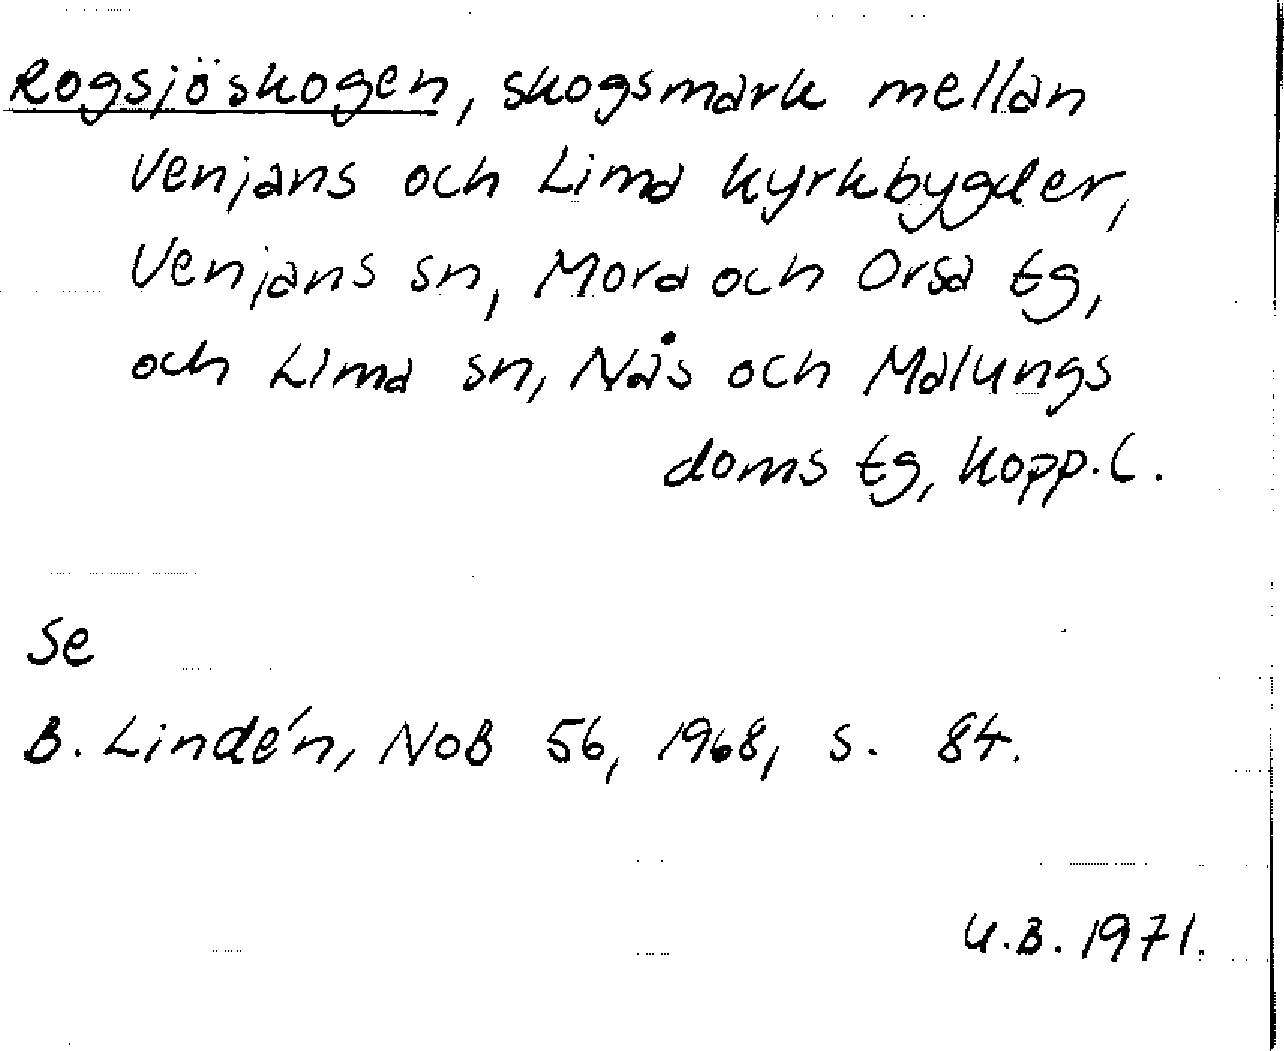 Rogsjöskogen, skogsmark mellan
Venjans och Lima kyrkbygder,
Venjans sn, Mora och Orsa tg,
och Lima sn, Nås och Malungs
doms tg, Kopp. l.
Se
B. Lindén, NoB 56, 1968, s. 84.
U.B. 1971.